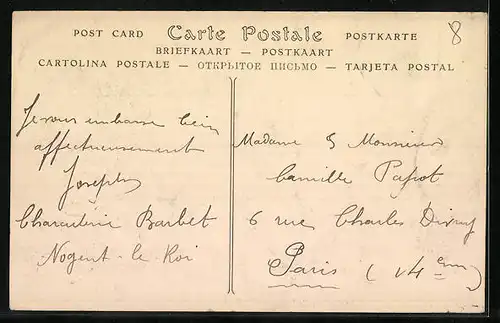 POST CARD Carte Postale POSTKARTE 8
BRIEFKAART — POSTKAART
CARTOLINA POSTALE — ОТКРЫТОЕ ПИСЬМО — TARJETA POSTAL
Je vous embrasse bien
affectueusement
Joseph
Barbet
Nogent-le-Roi
Madame & Monsieur
Camille Papot
6 rue Charles Divry
Paris (14 eme)